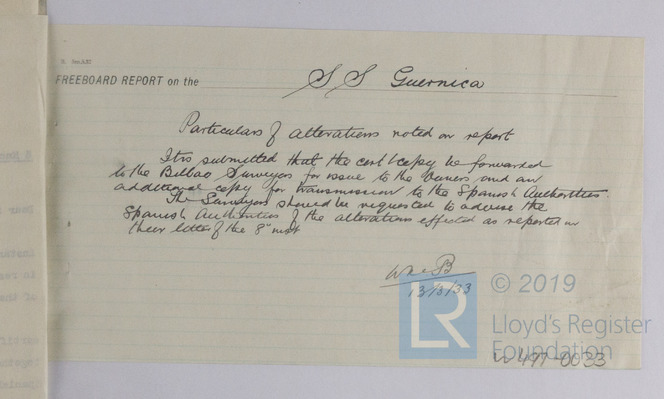 FREEBOARD REPORT on the S S Guernica
Particulars of alterations noted on report
It is submitted that the cert & copy be forwarded
to the Bilbao Surveyors for issue to the Owners and an
additional copy for transmission to the Spanish Authorities.
The Surveyors should be requested to advise the
Spanish Authorities of the alterations effected as reported in
their letter of the 8" inst
13/3/33
© 2019
LR
Lloyd's Register
Foundation
W497-0033